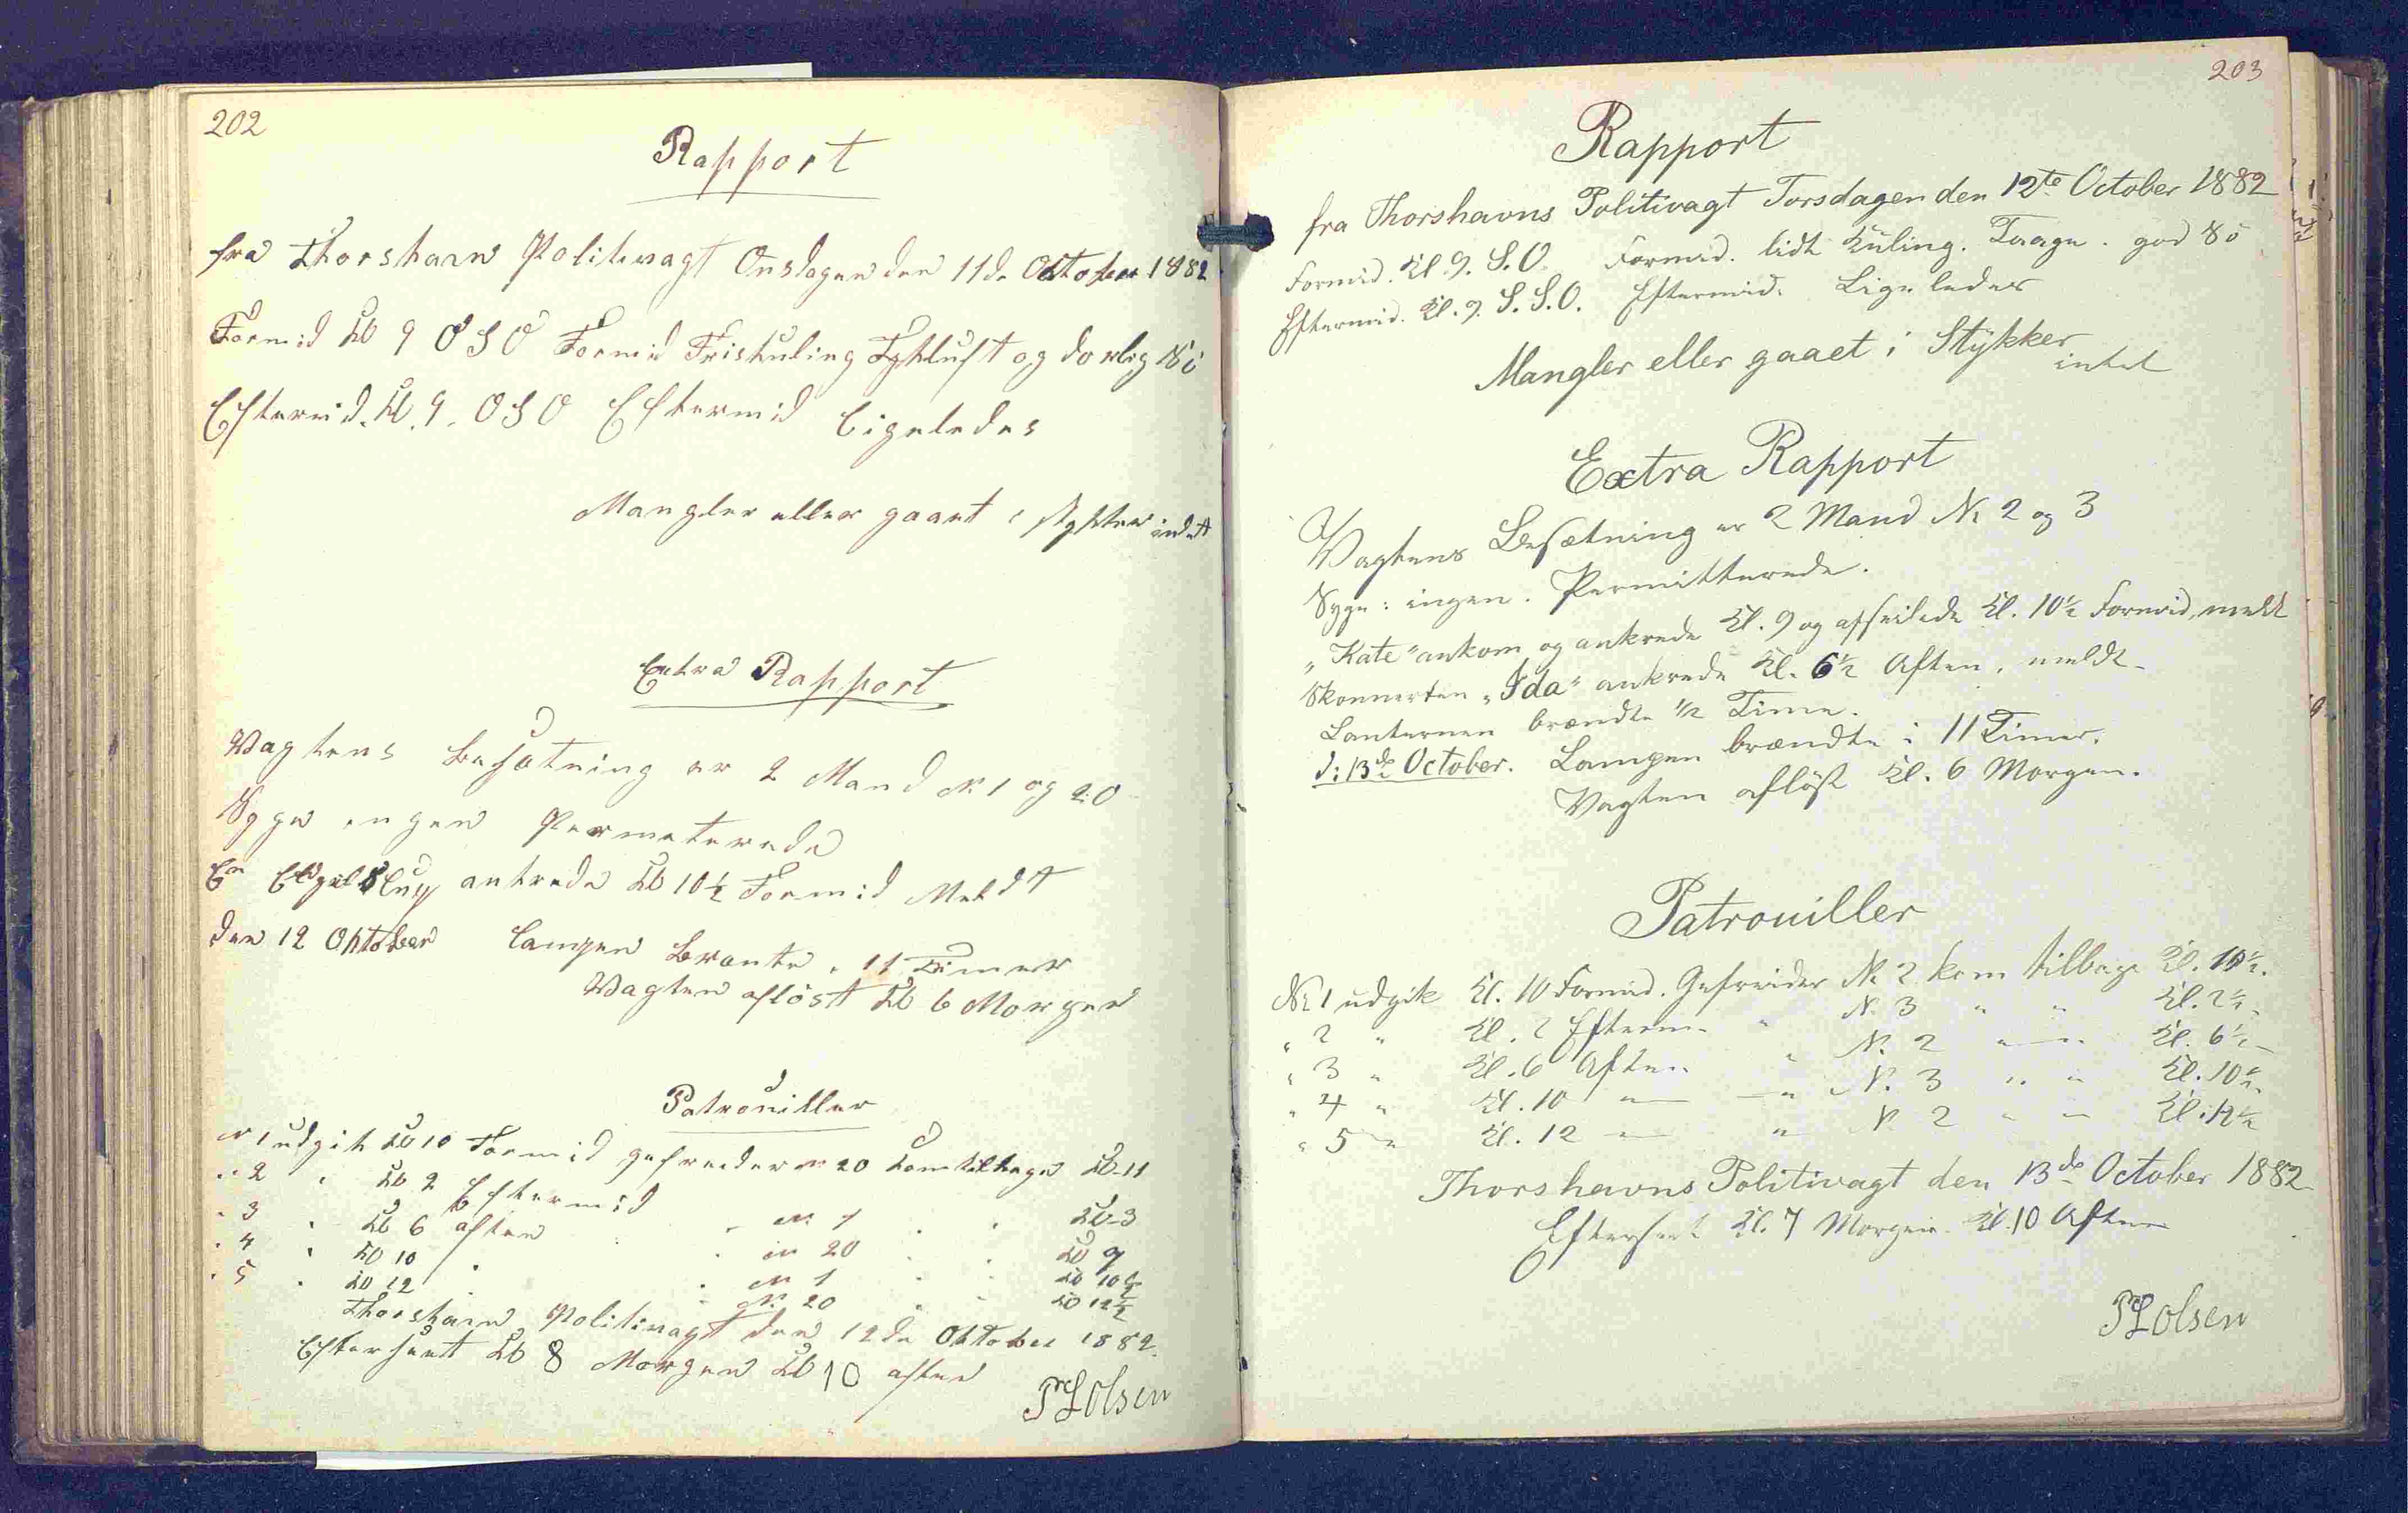 202
Rapport
fra Thorshavn Politivagt Onsdagen den 11de Oktober 1882
Formid Kl 9 O S O Formid Friskuling Tykluft og dorlig Sö
Eftermid. Kl. 9. O S O Eftermid Ligeledes
Mangler eller gaaet i stykker indet
Extra Rapport
Vagtens Besætning er 2 Mand N 1 og 20
Syge engen Permeterede
En Slup ankrede Kl 10½ Formid Meldt
den 12 Oktober Lampen Brænte i 11 Timer
Vagten aflöst Kl 6 Morgen
Patrouiller
N 1 udgik Kl 10 Formid gefreider N 20 kom tilbage Kl 11
" 2 " Kl 2 Eftermid " N 1 " " Kl 3
" 3 " Kl 6 aften " N 20 " " Kl 7
" 4 " Kl 10 " " N 1 " " Kl 10½
" 5 " Kl 12 " " N 20 " " Kl 12½
Thorshavn Politivagt den 12de Oktober 1882.
Efterseet Kl 8 Morgen Kl 10 aften
Olsen
203
Rapport
fra Thorshavns Politivagt Torsdagen den 12te October 1882
Formid. Kl 9. S.O. Formid. lidt Kuling. Taage. god Sö
Eftermid. Kl. 9. S.S.O. Eftermid. Ligeledes
Mangler eller gaaet i Stykker
intet
Extra Rapport
Vagtens Besætning er 2 Mand N. 2 og 3
Syge: ingen. Permitterede.
"Kate" ankom og ankrede Kl. 9 og afseilede Kl. 10½ Formid, meldt
Skonnerten "Ida" ankrede Kl. 6½ Aften, meldt
Lanternen brændte ½ Time.
d: 13de October. Lampen brændte i 11 Timer.
Vagten aflöst Kl. 6 Morgen.
Patrouiller
No 1 udgik Kl. 10 Formid. Gefreider N. 2 kom tilbage Kl. 10½.
" 2 " Kl. 2 Efterm. " N. 3 " " Kl. 2½
" 3 " Kl. 6 Aften " N. 2 " " Kl. 6½
" 4 " Kl. 10 " " N. 3 " " Kl. 10½
" 5 " Kl. 12 " " N. 2 " " Kl. 12½
Thorshavns Politivagt den 13de October 1882
Efterseet Kl. 7 Morgen Kl. 10 Aften
Olsen